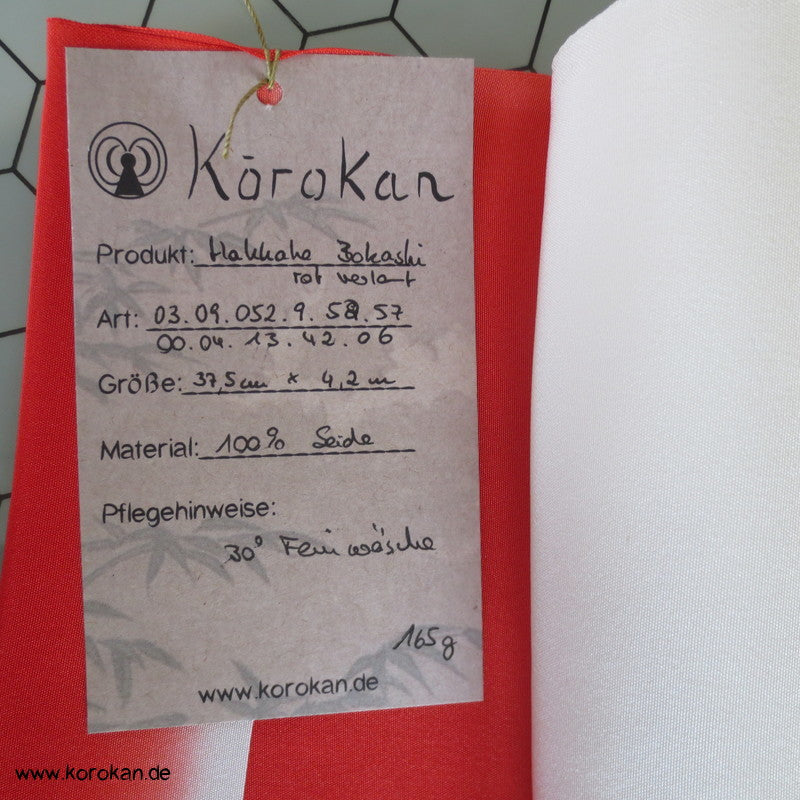 Kōrokan
Produkt: Hakkake Bokashi
rot verlauft
Art: 03.09.052.9.52.57
00.04.13.42.06
Größe: 37,5cm x 4,2m
Material: 100% Seide
Pflegehinweise:
30° Feinwäsche
165g
www.korokan.de
www.korokan.de